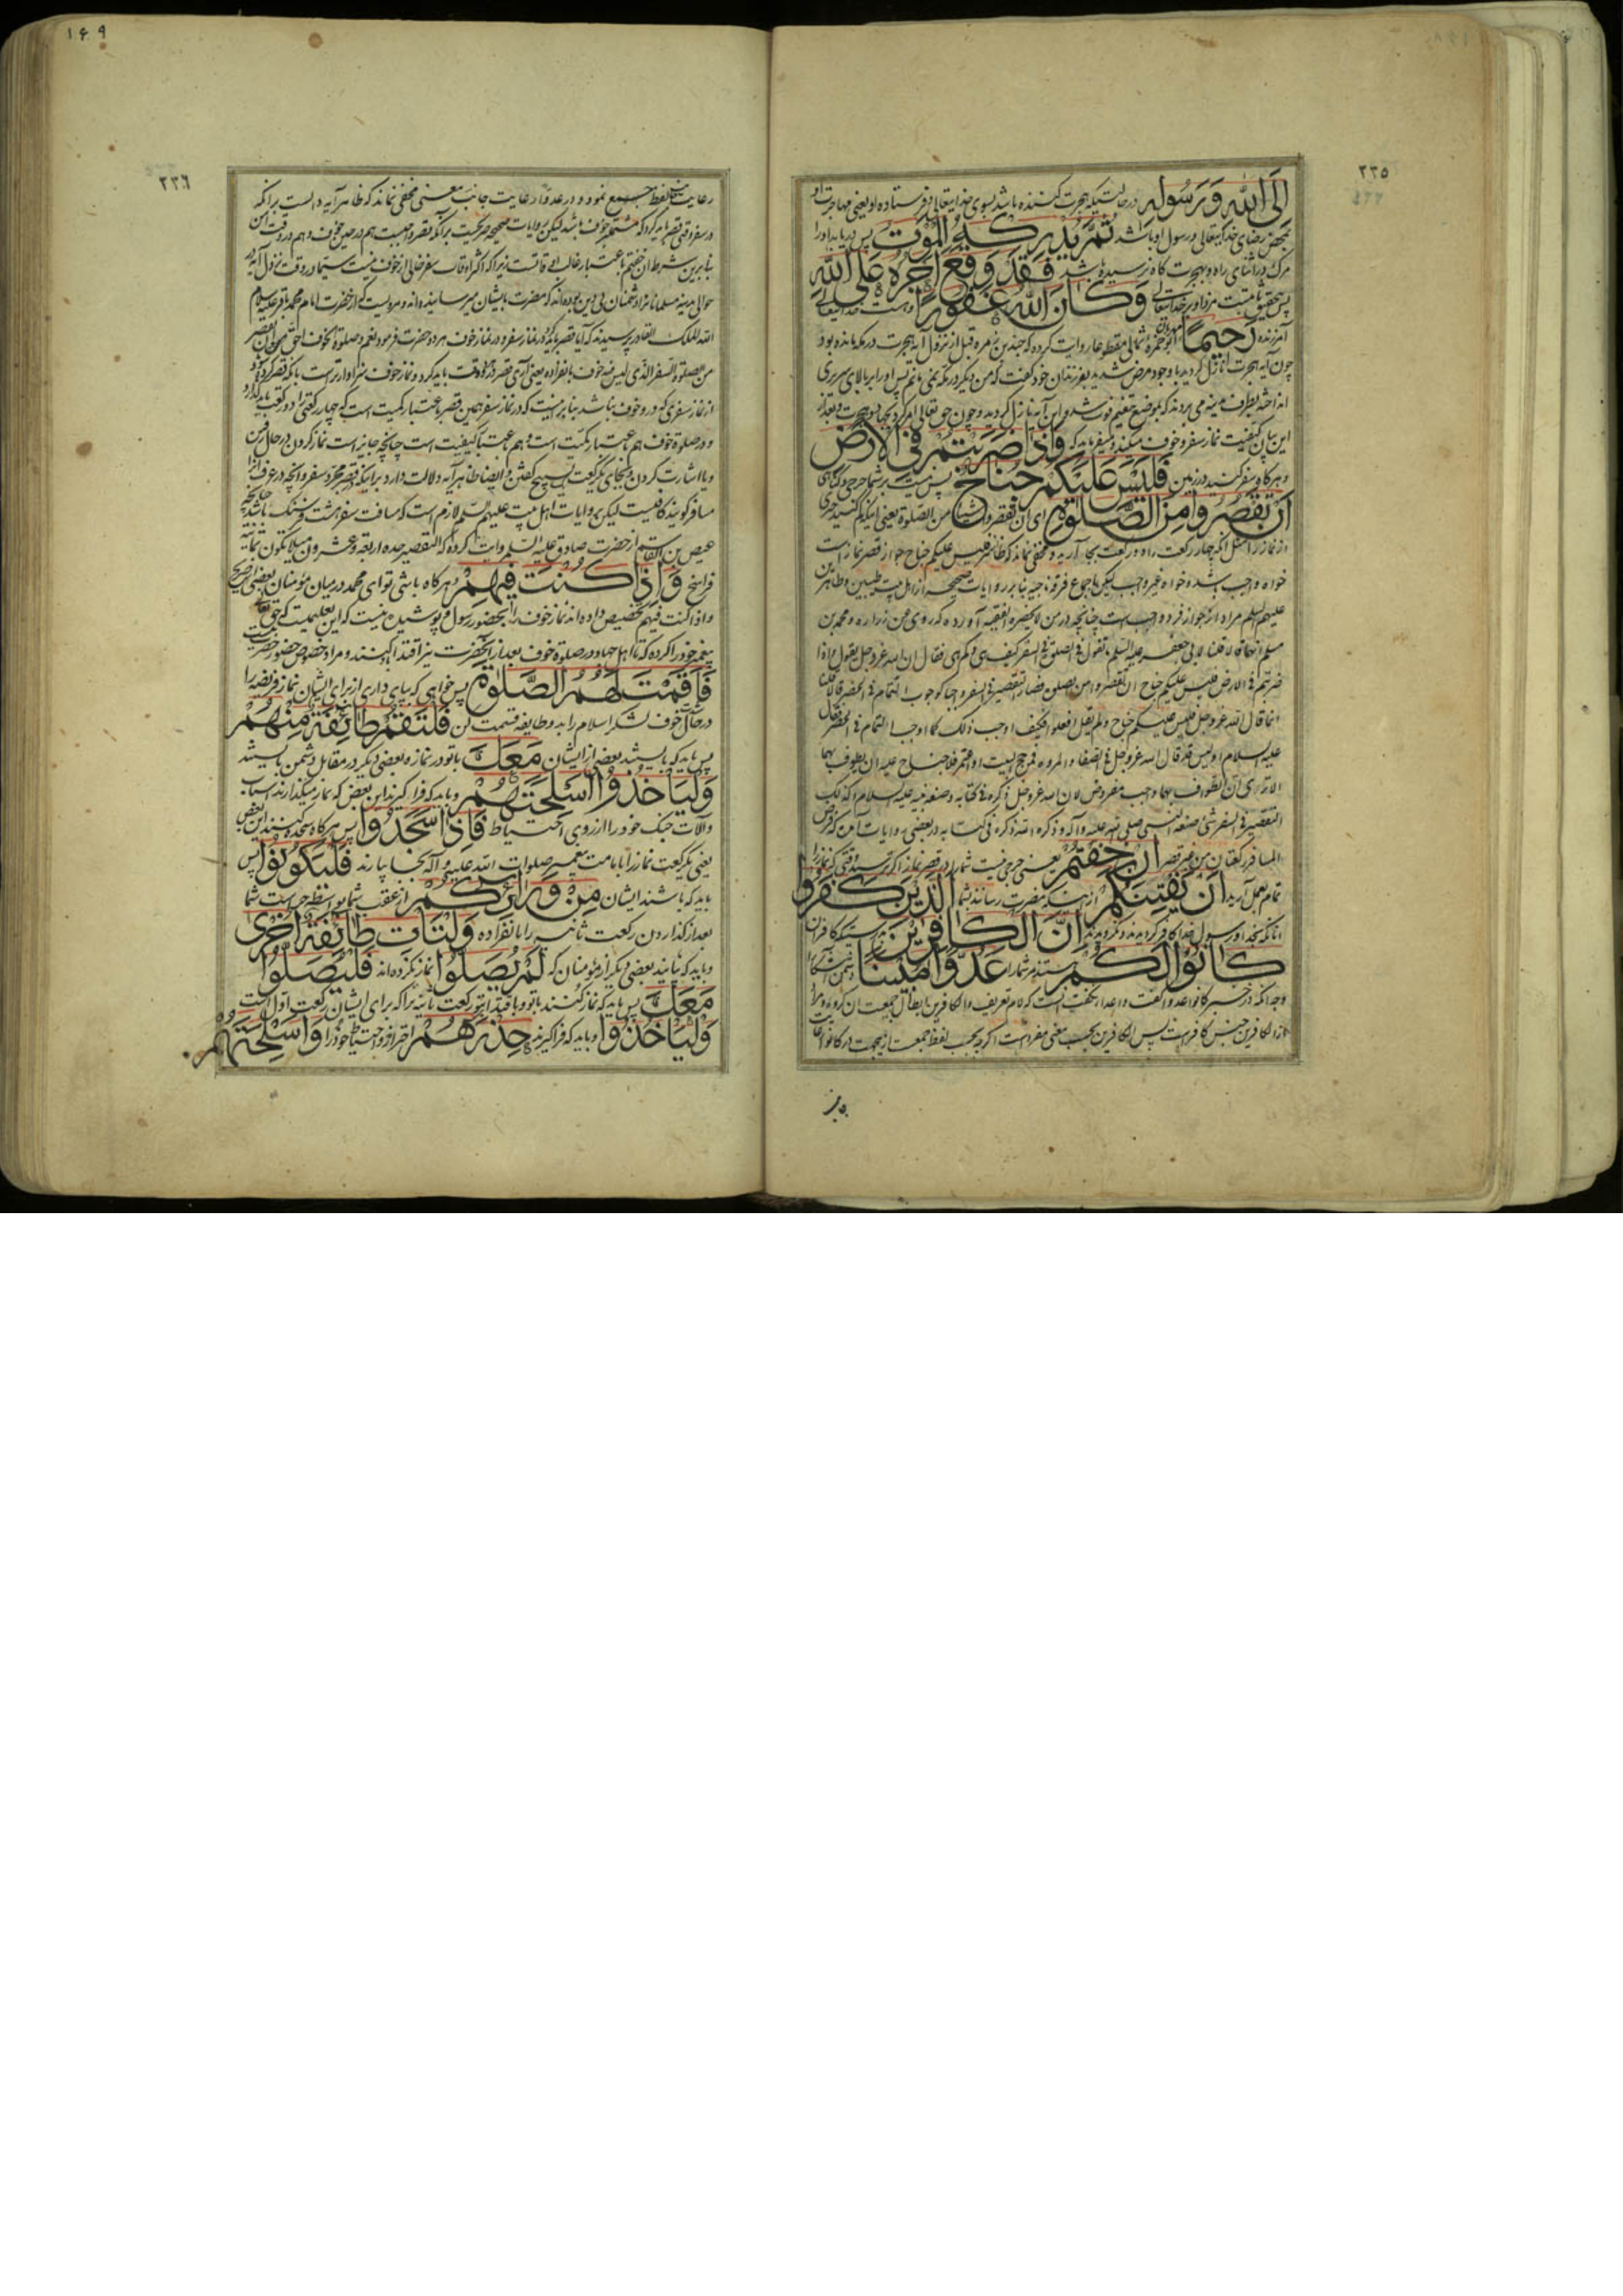 ٢٣٥
الی الله و رسوله در حالتیکه هجرت کننده باشد بسوی خدایتعالی و فرستاده او یعنی مهاجرت او
رضای خدایتعالی و رسول او باشد ثم یدرکه الموت پس دریابد او را
مرک در اثنای راه و بهجرت کاه نرسیده باشد فقد وقع اجره علی الله
پس بتحقیق ثابتست مزد او بر خدایتعالی و کان الله غفورا و هست خدایتعالی
آمرزنده رحیما مهربان ابو حمزه ثمالی روایت کرده که قبل از نزول آیه هجرت در مکه مانده بود
چون آیه هجرت نازل کردید با وجود مرض شدید بفرزندان خود کفت که من دیکر در مکه نمی مانم پس او را بر بالای سریری
این بیان کیفیت نماز سفر و خوف میکند و میفرماید که و اذا ضربتم فی الارض
و هرکاه سفر کنید در زمین فلیس علیکم جناح پس نیست بر شما حرجی و کناهی
ان تقصروا من الصلوة ای ان تقصروا شیئا من الصلوة یعنی اینکه کم کنید چیزی
از نماز را مثل آنکه چهار رکعت را دو رکعت بجا آرید و مخفی نماند که ظاهر فلیس علیکم جناح جواز قصر نماز است
خواه واجب باشد و خواه غیر واجب لیکن باجماع فرقه ناجیه بنابر روایات صحیحه از اهل بیت طیبین و طاهرین
علیهم السلم مراد از جواز فرد واجب است چنانچه در من لا یحضره الفقیه آورده که روی عن زراره و محمد بن
مسلم انهما قالا قلنا لابی جعفر علیه السلم ما تقول فی الصلوة فی السفر کیف هی و کم هی فقال ان الله عز و جل یقول و اذا
ضربتم فی الارض فلیس علیکم جناح ان تقصروا من الصلوة فصار التقصیر فی السفر واجبا کوجوب التمام فی الحضر قالا قلنا
انما قال الله عز و جل فلیس علیکم جناح و لم یقل افعلوا فکیف اوجب ذلک کما اوجب التمام فی الحضر فقال
علیه السلام اولیس قد قال الله عز و جل فی الصفا و المروه فمن حج البیت او اعتمر فلا جناح علیه ان یطوف بهما
الا تری ان الطواف بهما واجب مفروض لان الله عز و جل ذکره فی کتابه و صنعه نبیه علیه السلام و کذلک
التقصیر فی السفر شئ صنعه النبی صلی الله علیه و آله و ذکره الله ذکره فی کتابه در بعضی روایات آمده که فرض
المسافر رکعتان غیر قصر ان خفتم یعنی حرجی نیست شما را در قصر نماز اکر ترسید وقتی که نماز را
تمام بعمل آرید ان یفتنکم از اینکه مضرت رساند شما الذین کفروا
آنانکه بخدا و رسول خدا کافر کردیدند ان الکافرین بدرستیکه کافران
کانوا لکم هستند مر شما را عدوا مبینا دشمن آشکارا
٢٣٦
١۶٩
رعایت جانب لفظ جمع نمود و در عدوا رعایت جانب معنی مخفی نماند که ظاهر آیه دالست بر آنکه
در سفر وقتی قصر باید کرد که متضمن خوف باشد لیکن روایات صحیحه صریحست بر آنکه قصر واجبست هم در حین خوف و هم در وقت امن
بنابرین شرط ان خفتم باعتبار غالب اوقاتست زیرا که اکثر اوقات سفر خالی از خوف نیست سیما در وقت نزول آیه در
حوالی مدینه مسلمانان را دشمنان بی دین بوده اند که مضرت بایشان میرسانیده اند و مرویست که از حضرت امام محمد باقر علیه سلام
من الصلوة السفر الذی لیس فیه خوف بانفراده یعنی آری قصر در هر دو وقت باید کرد و نماز خوف سزاوارتر است بآنکه قصر کرده شود
از نماز سفری که در و خوف نباشد بنابر اینست که در نماز سفر همین قصر باعتبار کمیت است که چهار رکعتی را دو رکعت باید کذارد
و در صلوة خوف هم باعتبار کمیت است و هم باعتبار کیفیت است چنانچه جایز است نماز کردن در حال رفتن
و یا اشارت کردن و بجای یکرکعت تسبیح کفتن و ایضا ظاهر آیه دلالت دارد بر اینکه قصر بمجرد سفر و آنچه در عرف او را
مسافر کویند کافیست لیکن بروایات اهل بیت علیهم السلم لازم است که مسافت سفر هشت فرسنک باشد چنانچه
عیص بن القاسم از حضرت صادق علیه السلم روایت کرده که التقصیر حده اربعة و عشرون میلا یکون ثمانیة
فراسخ و اذا کنت فیهم و هرکاه باشی تو ای محمد در میان مؤمنان بعضی بصریح
و اذا کنت فیهم تخصیص داده اند نماز خوف را بحضور رسول و پوشیده نیست که این تعلیمیست که حق تعالی
پیغمبر خود را کرده که تا اهل جهاد در صلوة خوف بعد از آنحضرت نیز اقتدا کنند و مراد خصوص حضور حضرت نیست
فاقمت لهم الصلوة پس خواهی که بپای داری از برای ایشان نماز فریضه را
در حال خوف لشکر اسلام را بدو طایفه قسمت کن فلتقم طائفة منهم
پس باید که بایستند بعضی از ایشان معک با تو در نماز و بعضی دیکر در مقابل دشمن بایستند
و لیأخذوا اسلحتهم و باید که فراکیرند این بعض که نماز میکذارند اسباب
و آلات جنک خود را از روی احتیاط فاذا سجدوا پس هرکاه سجده کنند این بعض
یعنی یکرکعت نماز را بامامت پیغمبر صلوات الله علیه و آله بجا بیارند فلیکونوا پس
باید که باشند ایشان من ورائکم از عقب شما بواسطه حراست شما
بعد از کذاردن رکعت ثانیه را بانفراده و لتأت طائفة اخری
و باید که بیایند بعضی دیکر از مؤمنان که لم یصلوا نماز نکرده اند فلیصلوا
معک پس باید که نماز کنند با تو و باقتدا بتو رکعت ثانیه را که برای ایشان رکعت اول است
و لیأخذوا و باید که فراکیرند حذرهم احتراز و احتیاط خود را و اسلحتهم